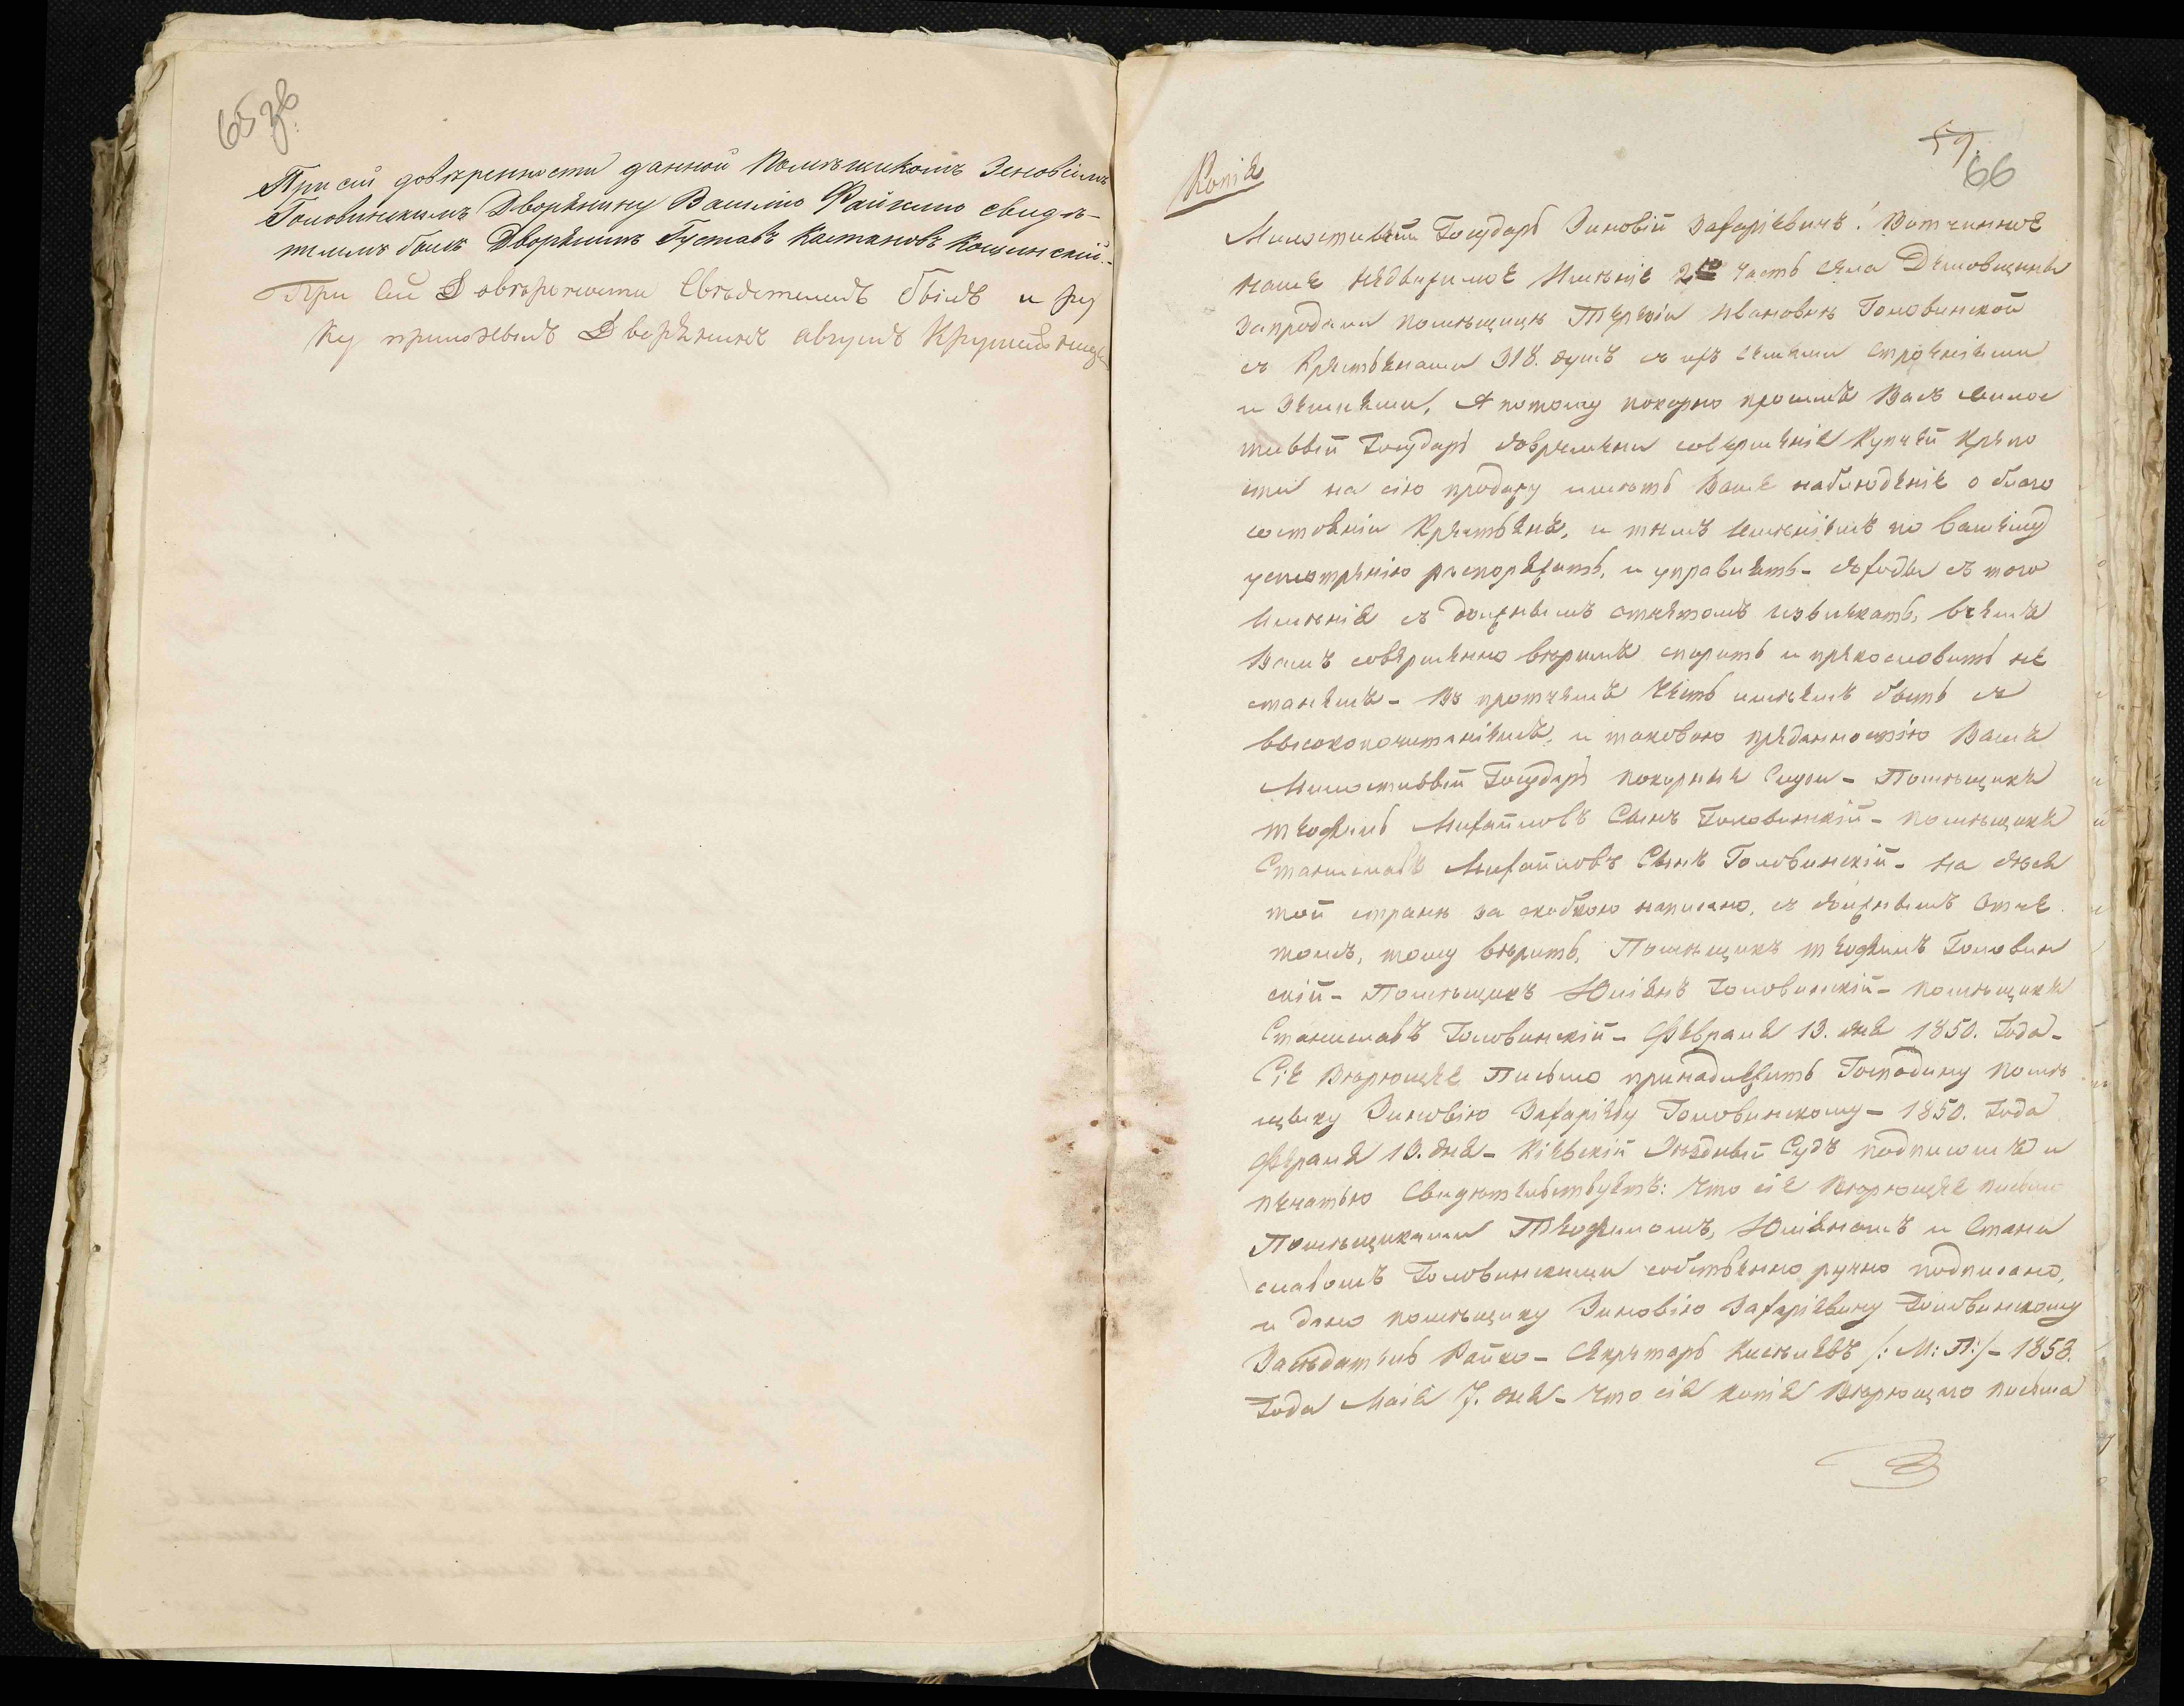 65 зв.
При сей довѣренности данной Помѣщикомъ Зеновіемъ
Головинскимъ Дворянину Василію Файгелю свидѣ-
телемъ былъ Дворянинъ Густавъ Каетановъ Кошинскій.-
При сей Довѣренности Свѣдетелемъ былъ и ру
ку приложылъ Дворянинъ
59.
66
Копія
Милостивый Государь Зиновій Захаріевичъ! Вотчинное
наше недвижимое Имѣніе 2ю часть села Демовщины
запродали помѣщицѣ Терезіи Ивановнѣ Головинской
съ Крестьянами 318. душъ съ ихъ семьями строеніями
и землями, А потому покорно просимъ Васъ милос
тивый Государь довремени совершенія Купчей крѣпо
сти на сію продажу имѣть Ваше наблюденіе о благо
состояніи Крестьянъ, и темъ Имѣніемъ по Вашему
усмотрѣнію распоряжать, и управлять - доходы съ того
Имѣнія съ должнымъ отчетомъ извлекать, въчемъ
Вамъ совершенно вѣримъ спорить и прекословить не
станемъ - Въ протчемъ честь имѣемъ быть съ
высокопочитаніемъ, и таковою преданностію Вамъ
Милостивый Государь покорные Слуги - Помѣщикъ
Теофилъ Михайловъ Сынъ Головинскій - помѣщикъ
Станиславъ Михайловъ Сынъ Головинскій - на
той странѣ за скобкою написано, съ должнымъ Отче
томъ, тому вѣрить, Помѣщикъ Теофилъ Головин
скій - Помѣщикъ Юліянъ Головинскій - помѣщикъ
Станиславъ Головинскій - Февраля 13. дня 1850. Года -
Сіе Вѣрющее Письмо принадлежитъ Господину помѣ
щыку Зиновію Захаріеву Головинскому - 1850. Года
Февраля 13. дня - Кіевскій Уѣздный Судъ подписомъ и
печатью Свидѣтельствуетъ: что сіе Вѣрющее письмо
Помѣщиками Теофиломъ, Юліяномъ и Стани
славомъ Головинскими собственно ручно подписано,
и дано помѣщику Зиновію Захаріевичу Головинскому
Засѣдатель Райко - Секретарь /: М: П:/ - 1853.
Года Маія 7. дня - что сія копія Вѣрющаго письма